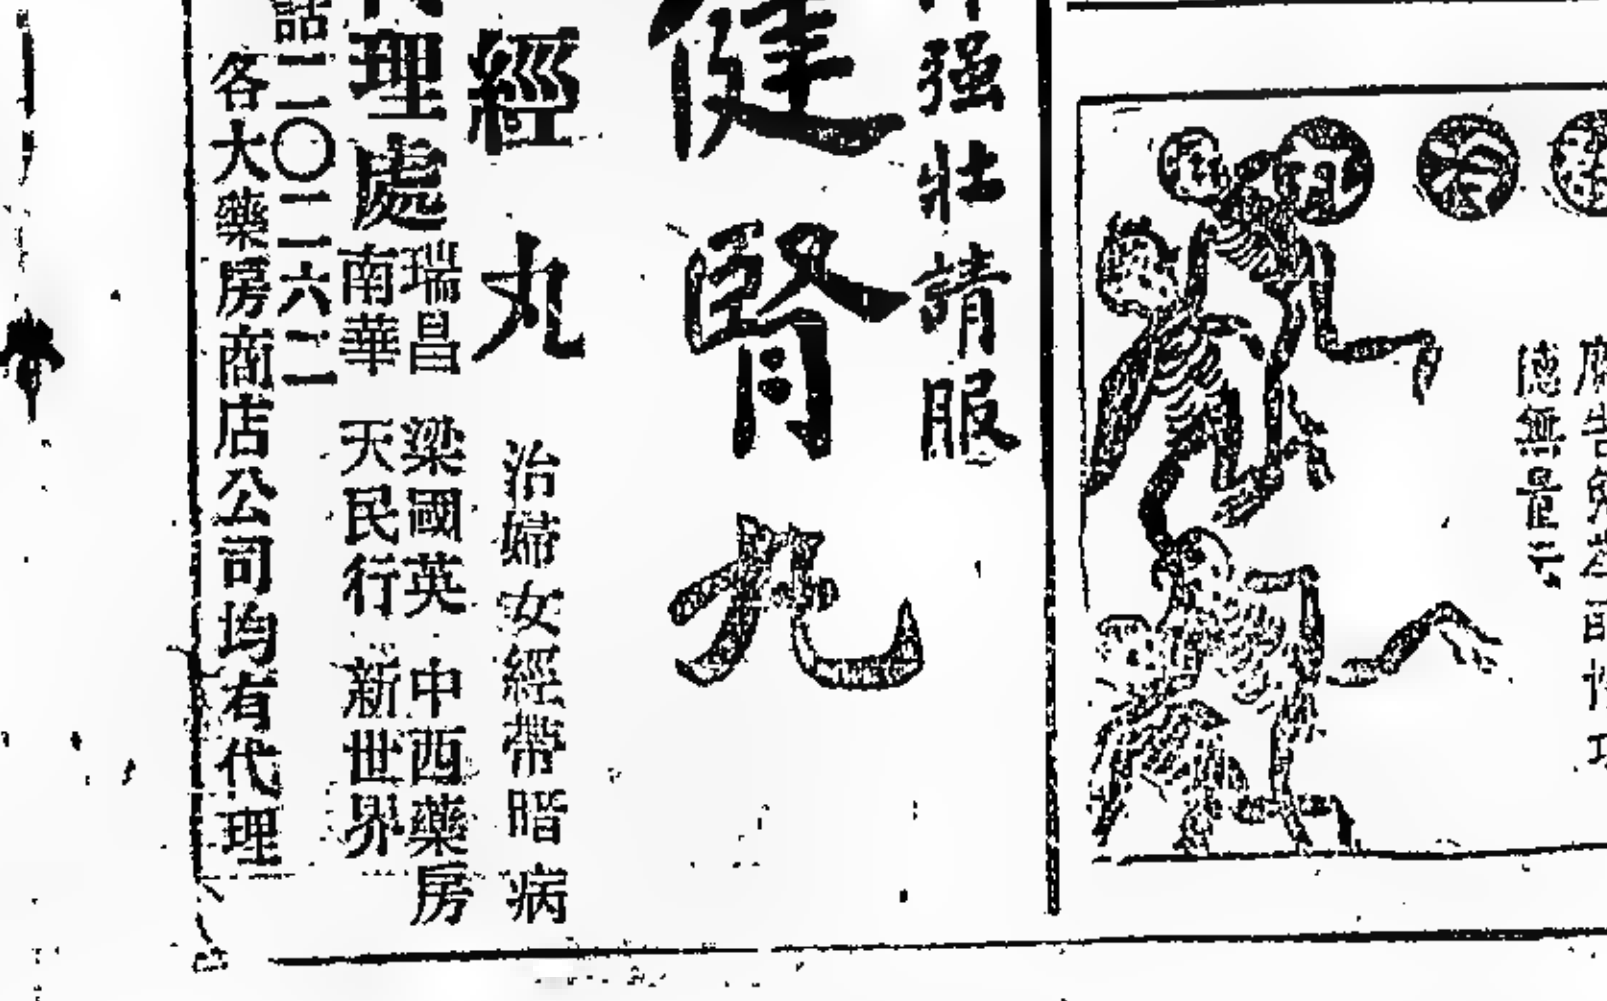 德無量
强壯請服
健腎丸
經丸 治婦女經帶暗病
理處 瑞昌 梁國英 中西藥房
南華 天民行 新世界
話二〇二六二
各大藥房商店公司均有代理